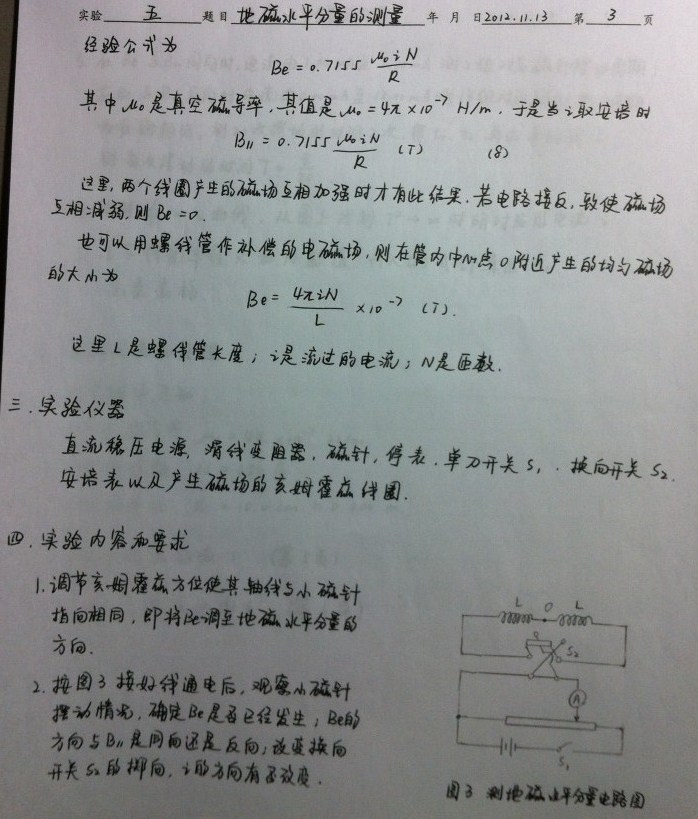 实验 五 题目 地磁水平分量的测量 年 月 日 2012.11.13 第 3 页
经验公式为
Be = 0.7155 μ₀iN/R
其中 μ₀ 是真空磁导率, 其值是 μ₀ = 4π×10⁻⁷ H/m, 于是当 i 取安培时
B∥ = 0.7155 μ₀iN/R (T) (8)
这里, 两个线圈产生的磁场互相加强时才有此结果. 若电路接反, 致使磁场
互相减弱, 则 Be = 0.
也可以用螺线管作补偿的电磁场, 则在管内中心点 O 附近产生的均匀磁场
的大小为
Be = 4πiN/L ×10⁻⁷ (T).
这里 L 是螺线管长度; i 是流过的电流; N 是匝数.
三. 实验仪器
直流稳压电源, 滑线变阻器, 磁针, 停表. 单刀开关 S₁. 换向开关 S₂.
安培表以及产生磁场的亥姆霍兹线圈.
四. 实验内容和要求
1. 调节亥姆霍兹方位使其轴线与小磁针
指向相同, 即将Be调至地磁水平分量的
方向.
2. 按图3接好线通电后, 观察小磁针
摆动情况, 确定Be是否已经发生; Be的
方向与B∥是同向还是反向; 改变换向
开关S₂的掷向, i的方向有否改变.
L O L
S₂
A
S₁
图3 测地磁水平分量电路图